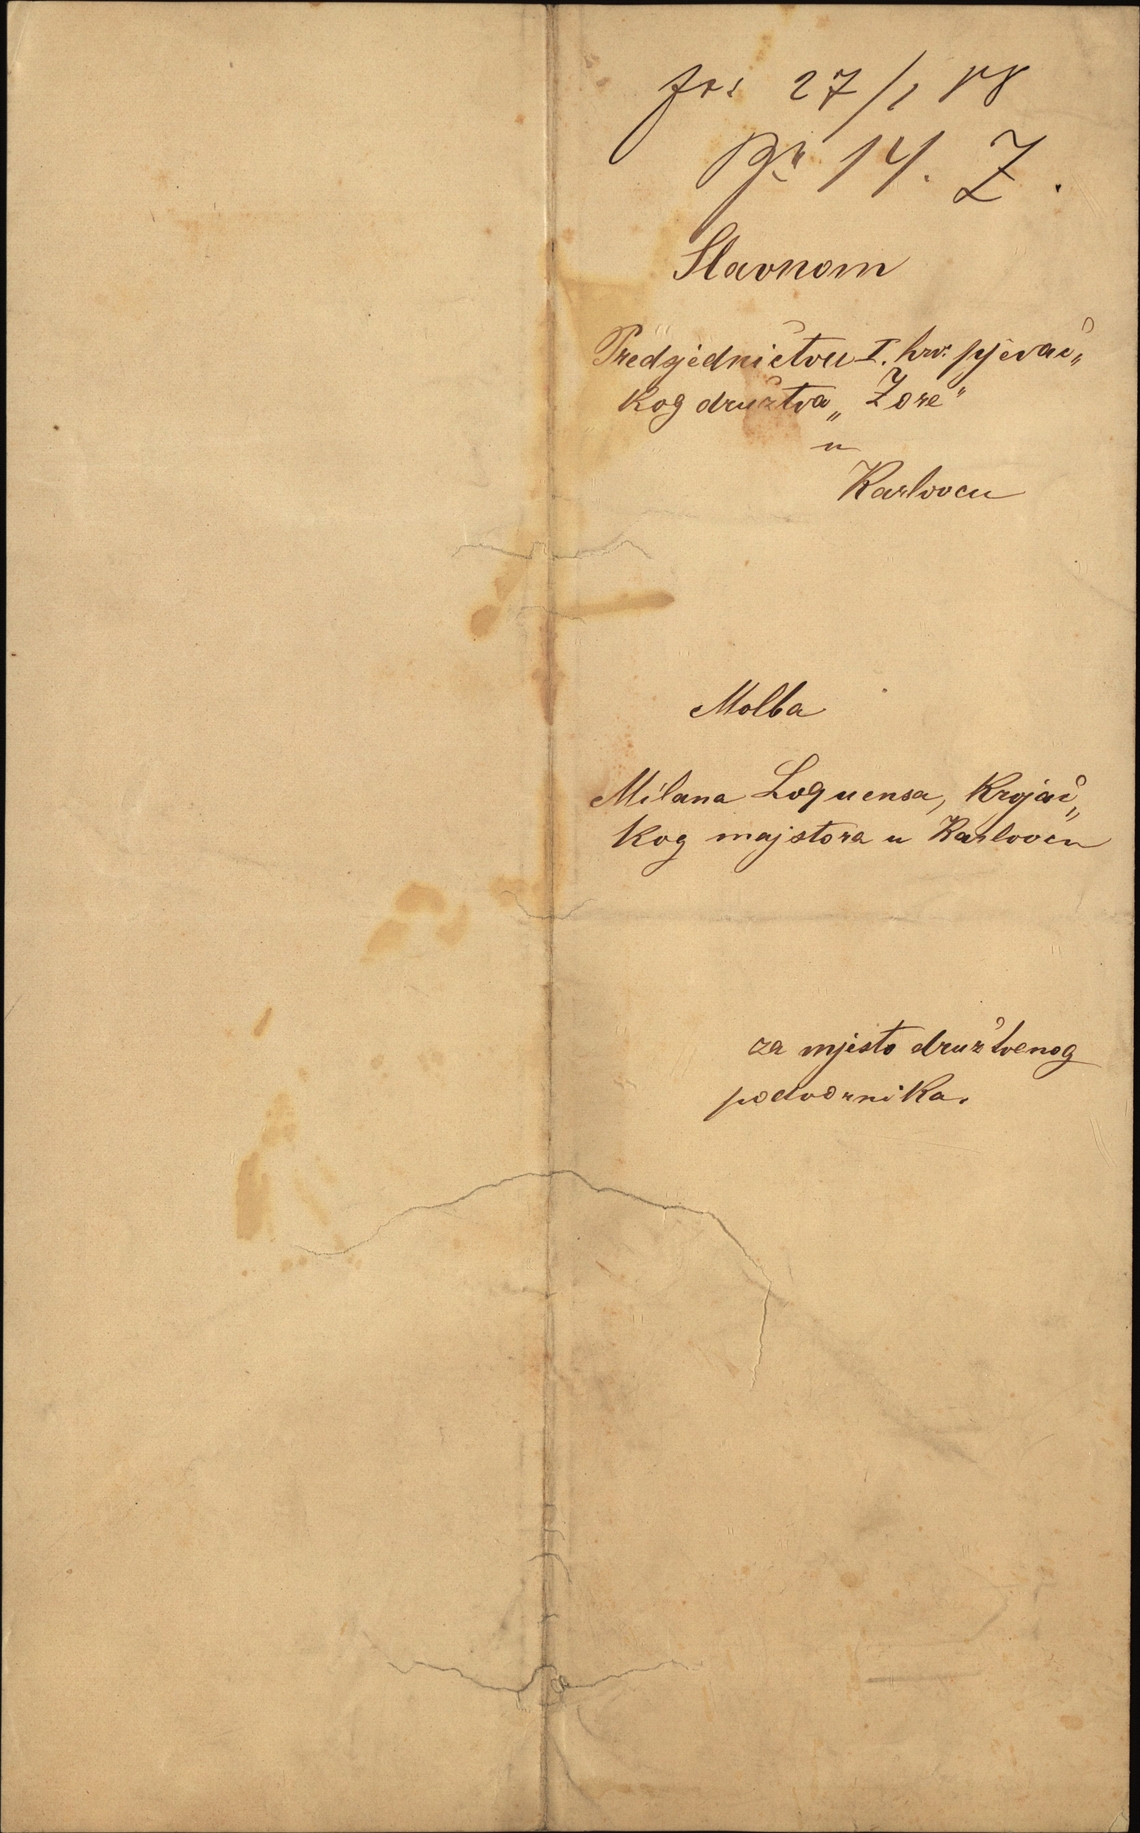 27/1 88
14. Z.
Slavnom
Predsjedničtvu I. hrv. pjevač„
kog družtva „Zore“
u
Karlovcu
Molba
Milana Loquensa, krojač„
kog majstora u Karlovcu
za mjesto družtvenog
podvornika.